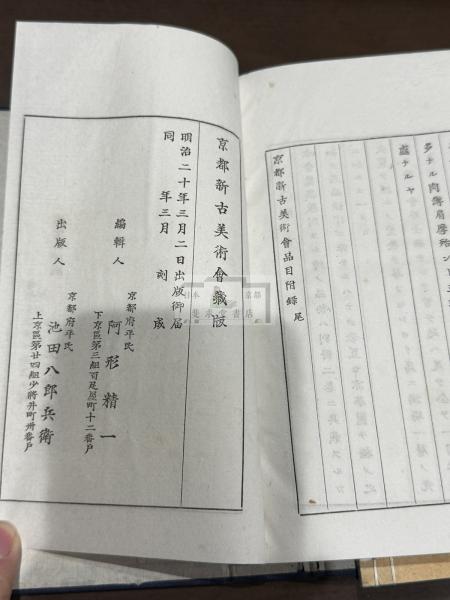 多テル肉薄肩摩殆ン
盧テルヤ
京都新古美術會品目附錄尾
京都新古美術會藏版
明治二十年三月二日出版御届
同年三月刻成
編輯人
京都府平民
阿形精一
下京區第三組百足屋町十二番戸
出版人
京都府平民
池田八郎兵衛
上京區第廿四組少將井町卅番戸